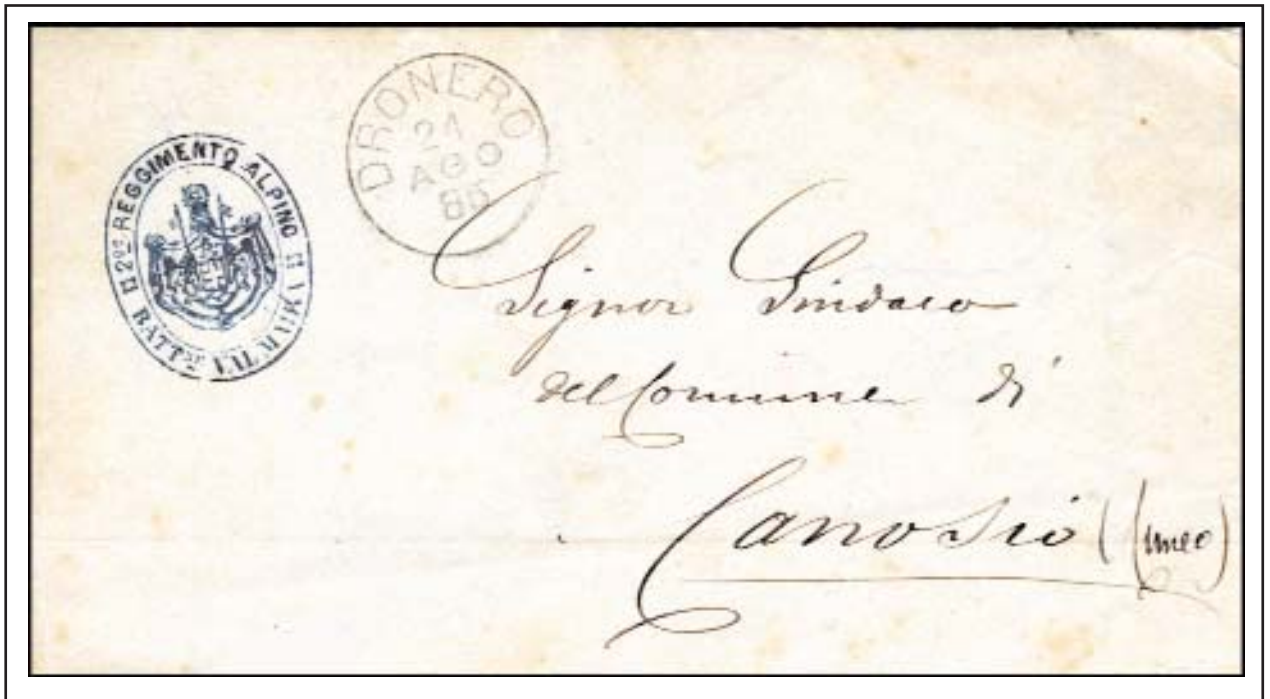 2º REGGIMENTO ALPINO
BATTNE VAL MAIRA
DRONERO
AGO
Signor Sindaco
del Comune di
Canosio (Cuneo)